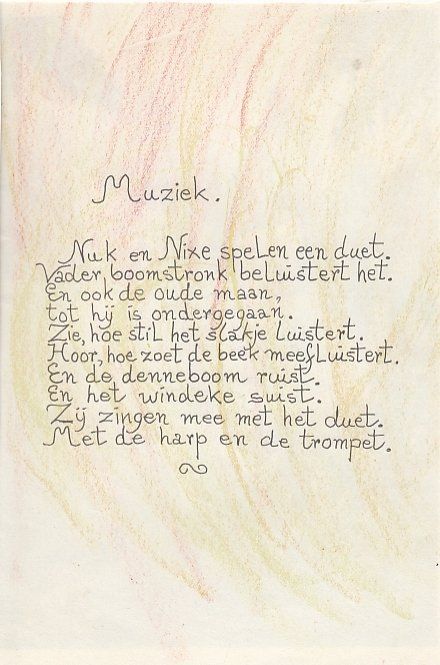 Muziek.
Nuk en Nixe speLen een duet.
Vader boomstronk beluistert het.
En ook de oude maan,
tot hij is ondergegaan.
Zie, hoe stiL het slakje Luistert.
Hoor, hoe zoet de beek meefLuistert.
En de denneboom ruist.
En het windeke suist.
Zij zingen mee met het duet.
Met de harp en de trompet.